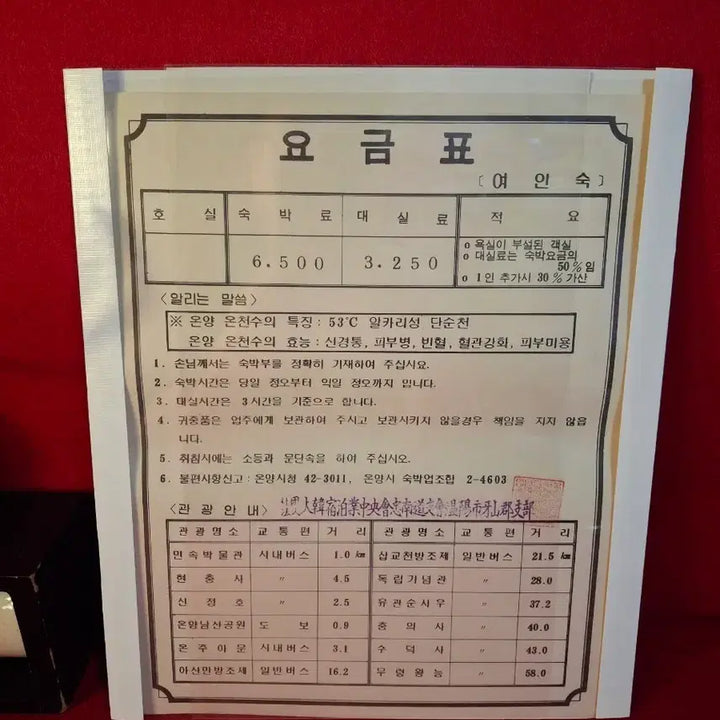 요금표
〔여인숙〕
호실 숙박료 대실료 적요
6.500 3.250
o 욕실이 부설된 객실
o 대실료는 숙박요금의
50%임
o 1인 추가시 30% 가산
〈알리는 말씀〉
※ 온양 온천수의 특징 : 53℃ 알카리성 단순천
온양 온천수의 효능 : 신경통, 피부병, 빈혈, 혈관강화, 피부미용
1. 손님께서는 숙박부를 정확히 기재하여 주십시요.
2. 숙박시간은 당일 정오부터 익일 정오까지 입니다.
3. 대실시간은 3시간을 기준으로 합니다.
4. 귀중품은 업주에게 보관하여 주시고 보관시키지 않을경우 책임을 지지 않읍
니다.
5. 취침시에는 소등과 문단속을 하여 주십시오.
6. 불편사항신고 : 온양시청 42-3011, 온양시 숙박업조합 2-4603
〈관광안내〉 大韓宿泊業中央會忠南道支會溫陽市牙山郡支部
관광명소 교통편 거리 관광명소 교통편 거리
민속박물관 시내버스 1.0㎞ 삽교천방조제 일반버스 21.5㎞
현충사 〃 4.5 독립기념관 〃 28.0
신정호 〃 2.5 유관순사우 〃 37.2
온양남산공원 도보 0.9 충의사 〃 40.0
온주아문 시내버스 3.1 수덕사 〃 43.0
아산만방조제 일반버스 16.2 무령왕능 〃 58.0